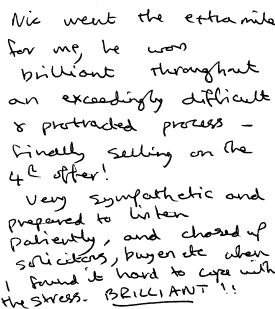 Nic went the extra mile
for me, he was
brilliant throughout
an exceedingly difficult
& protracted process –
finally selling on the
4th offer!
Very sympathetic and
prepared to listen
patiently, and chased up
solicitors, buyer etc when
I found it hard to cope with
the stress. BRILLIANT!!